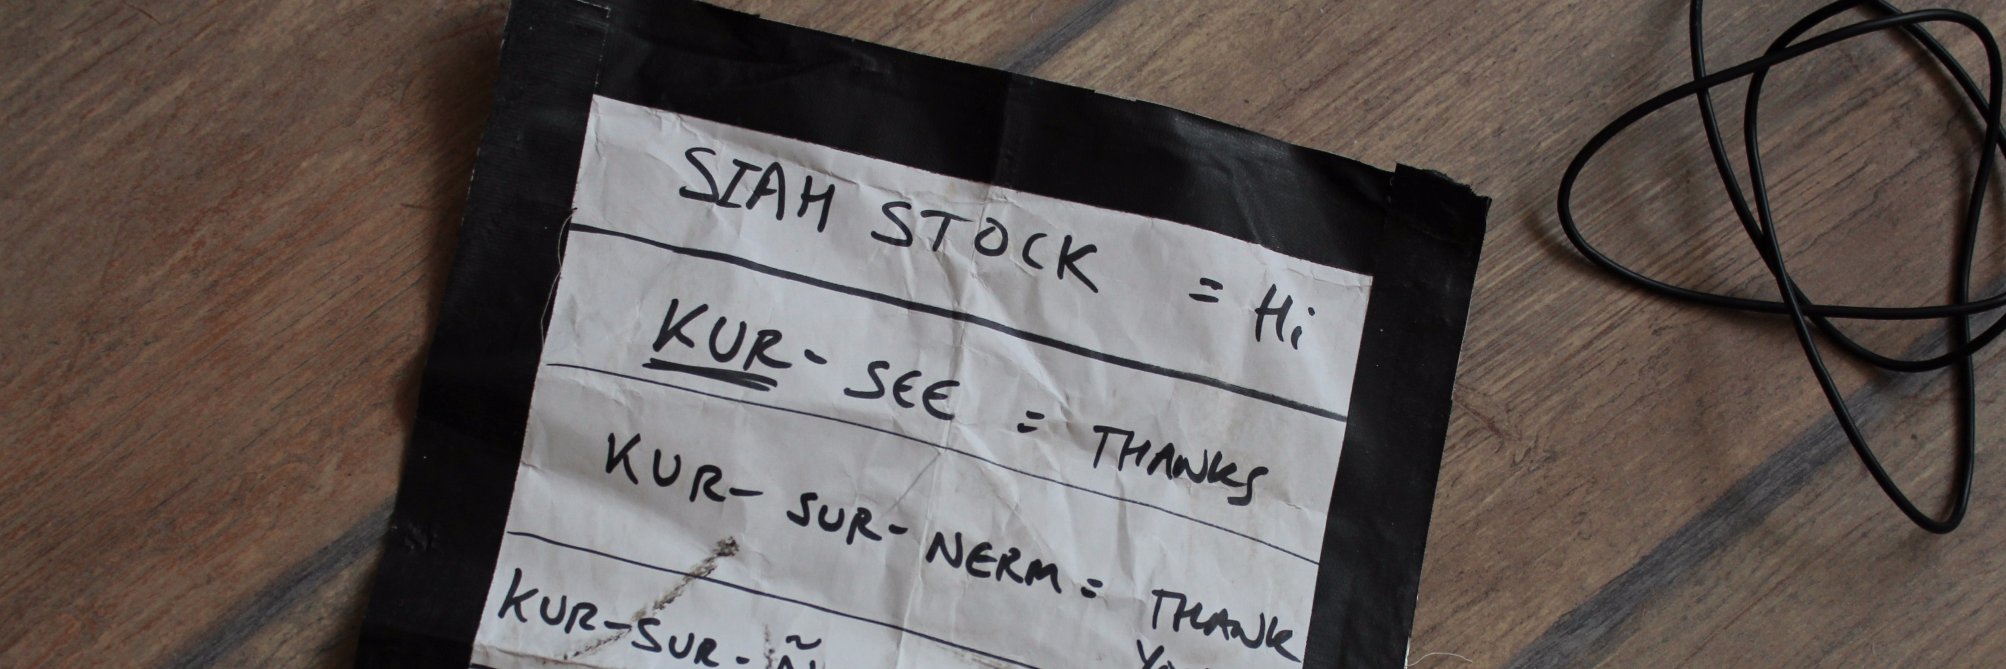 SIAH STOCK = Hi
KUR- SEE = THANKS
KUR- SUR- NERM = THANK
KUR-SUR-